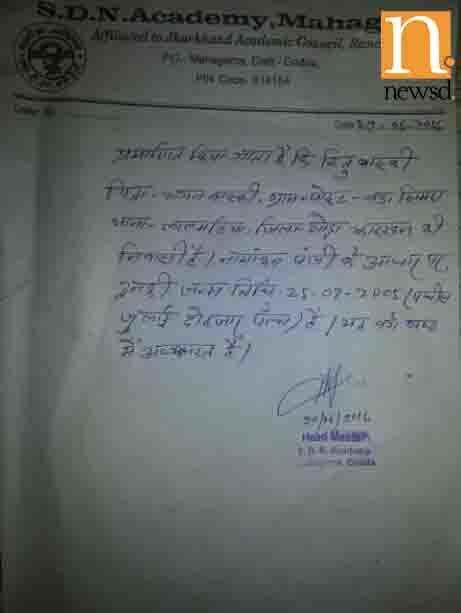 S.D.N. Academy, Mahag
n.
newsd
Affiliated to Jharkhand Academic Council, Ranc
PO- Mahagama, Distt - Godda,
PIN Code- 814154
Date 29-06-2016
प्रमाणित किया जाता है कि
पिता- ग्राम+पोस्ट- बड़ा सिमरा
थाना- ललमटिया, जिला- गोड्डा झारखण्ड की
निवासी है। नामांकन पंजी के आधार पर
इनकी जन्म तिथि 25-07-2005 (पचीस
जुलाई दो हजार पाँच) है। यह वर्ग
में अध्ययनरत है।
29/06/2016
Head Master
S. D. N. Academy
Mahagama, Godda